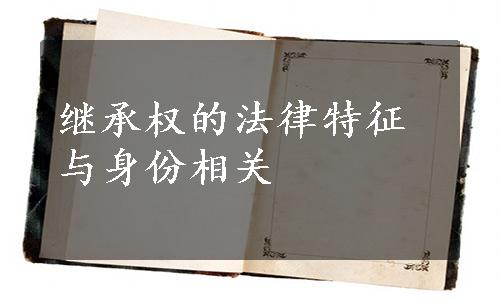 继承权的法律特征
与身份相关